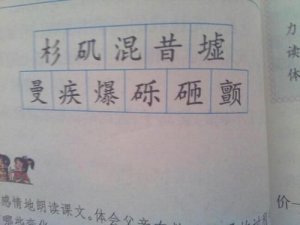 杉矶混昔墟
曼疾爆砾砸颤
感情地朗读课文。体会父亲
哪些变化
力
读
体
价一